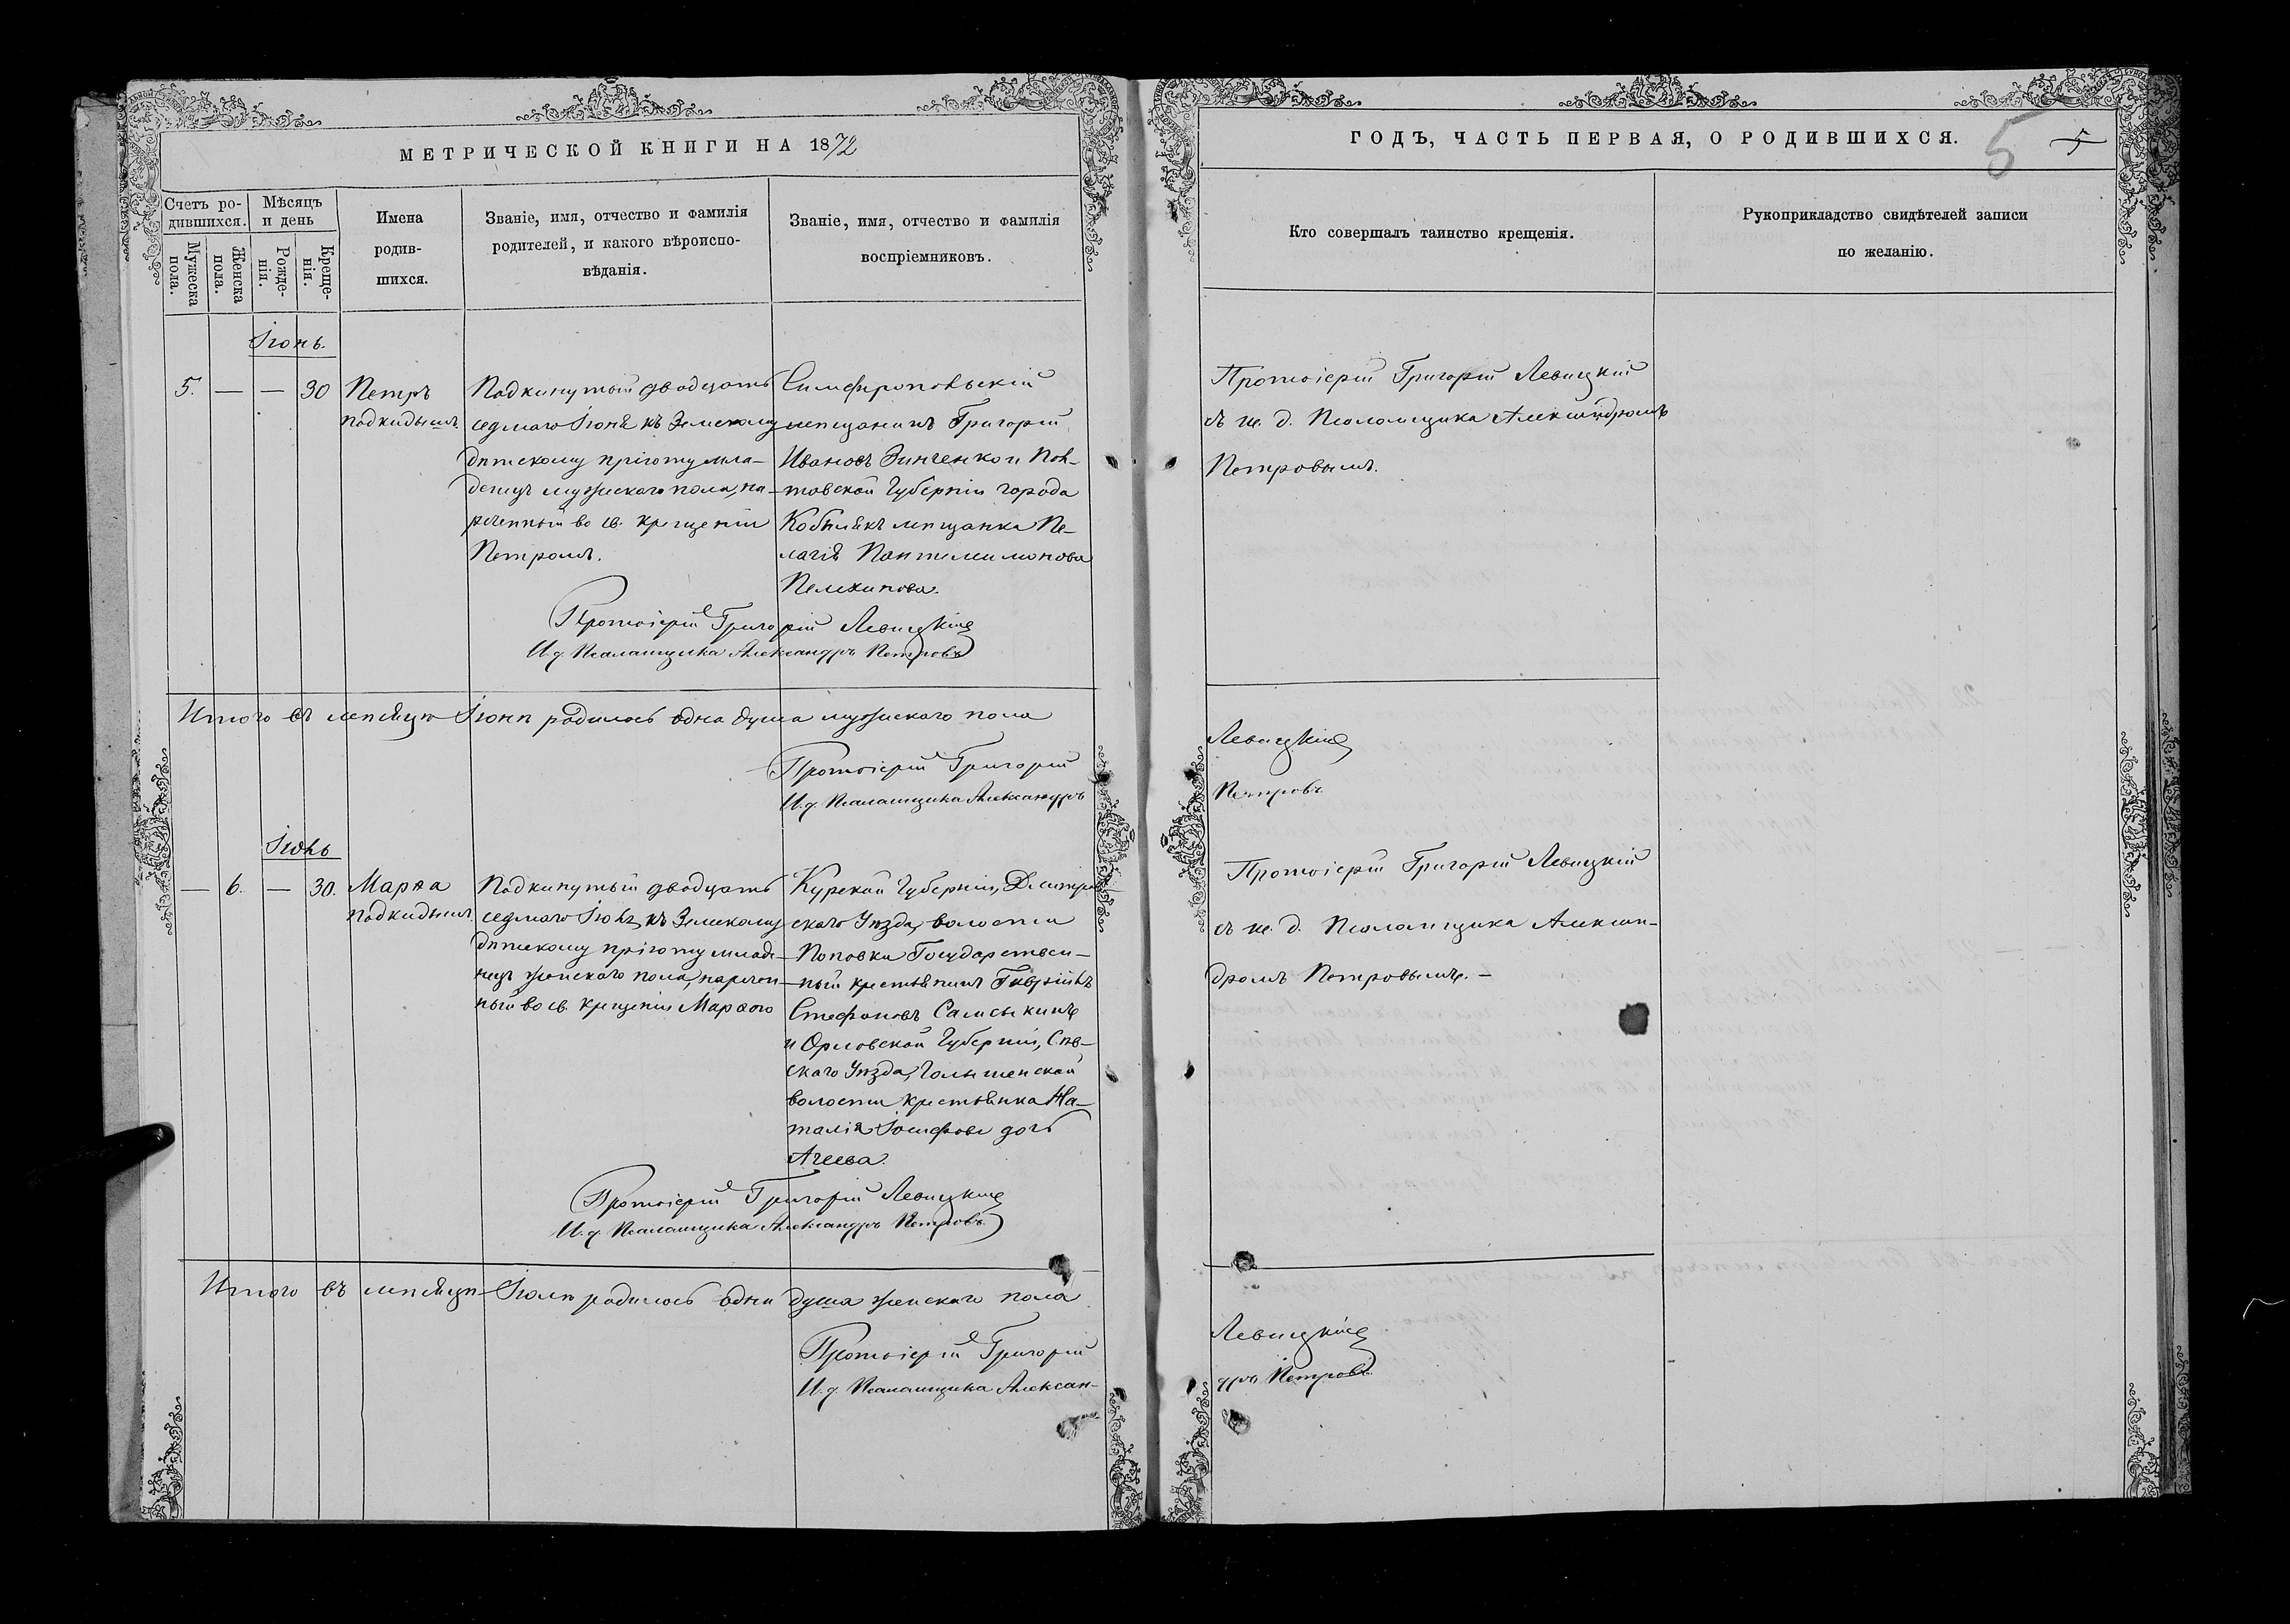 МЕТРИЧЕСКОЙ КНИГИ НА 1872
Счетъ ро-
дившихся.
Мѣсяцъ
и день
Мужеска
пола.
Женска
пола.
Рожде-
нія.
Креще-
нія.
Имена
родив-
шихся.
Званіе, имя, отчество и фамилія
родителей, и какого вѣроиспо-
вѣданія.
Званіе, имя, отчество и фамилія
воспріемниковъ.
Іюнь.
5. — — 30
Петръ
подкидышъ.
Подкинутый двадцать
седмаго Іюня къ Земскому
дѣтскому пріюту мла-
денецъ мужескаго пола, на-
реченный во св. крещеніи
Петромъ.
Симферопольскій
мещанинъ Григорій
Ивановъ Зинченко и Пол-
тавской Губерніи города
Кобылякъ мещанка Пе-
лагія Пантелимонова
Пелехинова.
Протоіерей Григорій Левицкій
И. д. Псаломщика Александръ Петровъ
Итого въ мѣсяцѣ Іюнѣ родилось одна душа мужескаго пола
Протоіерей Григорій
И. д. Псаломщика Александръ
Іюль
— 6. — 30.
Марѳа
подкидышъ.
Подкинутый двадцать
седмаго Іюля, къ Земскому
дѣтскому пріюту младе-
нецъ женскаго пола, наречен-
ный во св. крещеніи Марѳою
Курской Губерніи, Дмитріев-
скаго Уѣзда, волости
Поповки Государствен-
ный крестьянинъ Гавріилъ
Стефановъ Самсыкинъ
и Орловской Губерніи, Сѣв-
скаго Уѣзда,
волости крестьянка На-
талія Іосифова дочь
Агеева.
Протоіерей Григорій Левицкій
И. д. Псаломщика Александръ Петровъ
Итого въ мѣсяцѣ Іюлѣ родилось одна душа женскаго пола
Протоіерей Григорій
И. д. Псаломщика Алексан-
ГОДЪ, ЧАСТЬ ПЕРВАЯ, О РОДИВШИХСЯ.
5
5
Кто совершалъ таинство крещенія.
Рукоприкладство свидѣтелей записи
по желанію.
Протоіерей Григорій Левицкій
съ и. д. Псаломщика Александромъ
Петровымъ.
Левицкій
Петровъ
Протоіерей Григорій Левицкій
съ и. д. Псаломщика Алексан-
дромъ Петровымъ. —
Левицкій
дръ Петровъ